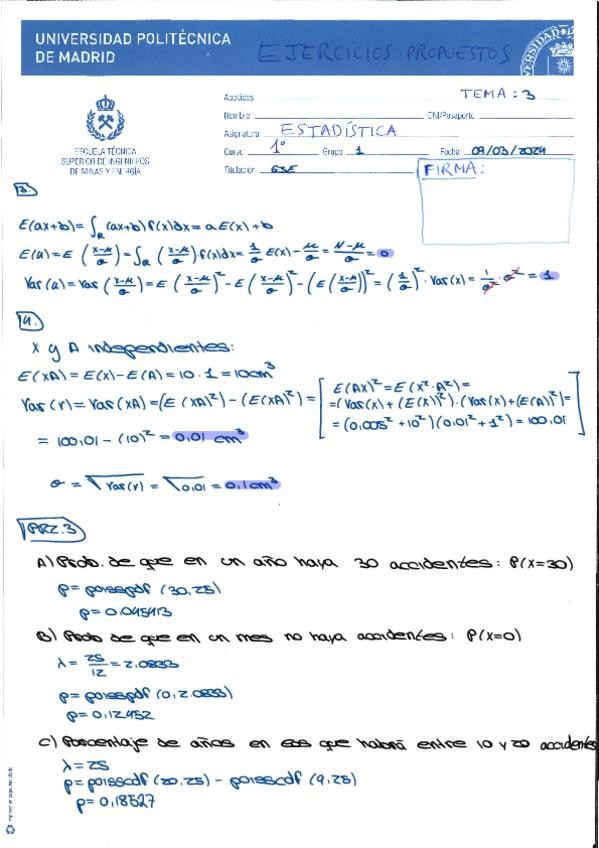 UNIVERSIDAD POLITÉCNICA
DE MADRID
EJERCICIOS PROPUESTOS
Apellidos TEMA: 3
Nombre DNI/Pasaporte
Asignatura ESTADÍSTICA
Curso 1º Grupo 1 Fecha 09/03/2024
Titulación
FIRMA:
ESCUELA TÉCNICA
SUPERIOR DE INGENIEROS
DE MINAS Y ENERGÍA
3.
E(ax+b)=∫R (ax+b) f(x)dx = a E(x) + b
E(u) = E ((x-μ)/σ) = ∫R ((x-μ)/σ) · f(x)dx = 1/σ E(x) - μ/σ = (μ-μ)/σ = 0
Var(u) = Var ((x-μ)/σ) = E ((x-μ)/σ)² - E ((x-μ)/σ)² - (E ((x-μ)/σ))² = (1/σ)² · Var(x) = 1/σ² · σ² = 1
4.
X y A independientes:
E(XA) = E(X) - E(A) = 10 · 1 = 10cm³
Var(Y) = Var(XA) = (E(XA)²) - (E(XA)²) = [E(AX)² = E(X² · A²) =
= (Var(X) + (E(X))²) · (Var(X) + (E(A))²) =
= (0,005² + 10²)(0,01² + 1²) = 100,01]
= 100,01 - (10)² = 0,01 cm³
σ = √Var(Y) = √0,01 = 0,1cm³
PRZ.3
A) Prob. de que en un año haya 30 accidentes: P(X=30)
p = poisspdf (30,25)
p = 0.045413
B) Prob de que en un mes no haya accidentes: P(X=0)
λ = 25/12 = 2.0833
p = poisspdf (0,2.0833)
p = 0,12452
C) Porcentaje de años en los que habrá entre 10 y 20 accidentes
λ = 25
p = poisscdf (20,25) - poisscdf (9,25)
p = 0,18527